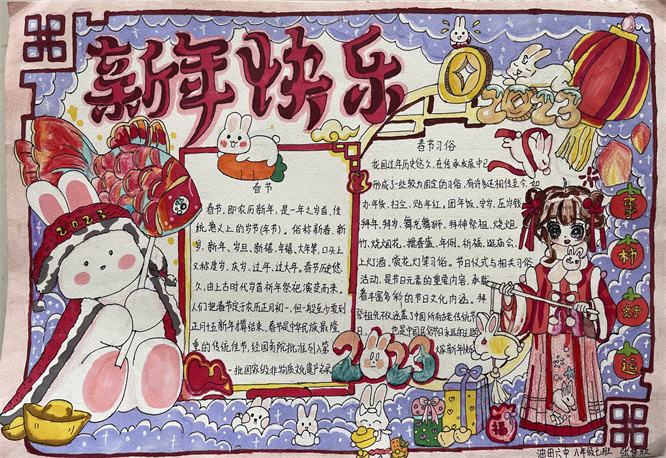 新年快乐
2023
春节
春节，即农历新年，是一年之岁首、传
统意义上的岁节(年节)。俗称新春、新
岁、新年、岁旦、新禧、年禧、大年等，口头上
又称度岁、庆岁、过年、过大年。春节历史悠
久，由上古时代岁首祈年祭祀演变而来，
人们把春节定于农历正月初一，但一般至少要到
正月十五新年才结束，春节是中华民族最隆
重的传统佳节，经国务院批准列入第
一批国家级非物质文化遗产名录
春节习俗
我国过年历史悠久，在传承发展中已
形成了一些较为固定的习俗，有许多还相传至今，如
办年货、扫尘、贴年红、团年饭、守岁、压岁钱
拜年、拜岁、舞龙舞狮、拜神祭祖、烧炮
竹、烧烟花、掼春盛、年例、祈福、逛庙会、
上灯酒、赏花灯等习俗。节日仪式与相关习俗
活动，是节日元素的重要内容，承载
着丰富多彩的节日文化内涵。拜
祭祖
中国所有传统节
日
也是中国民俗节日
新年快
2023
2023
事
柿
好
运
福
油田六中 八年级七班